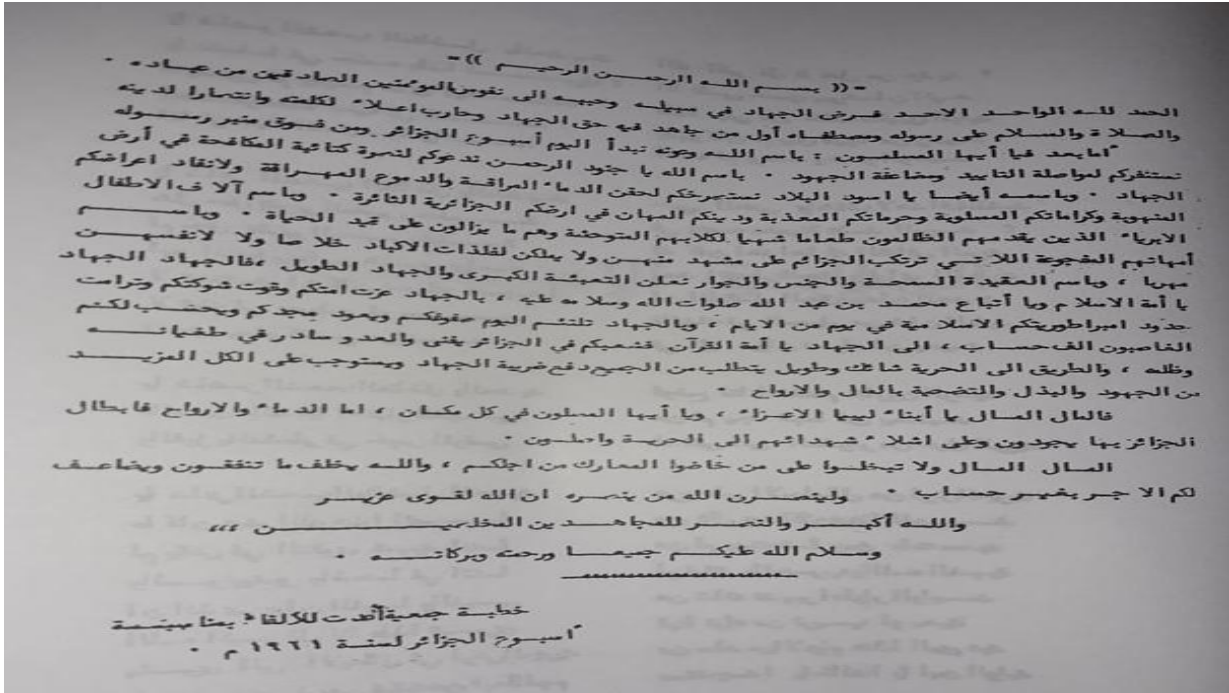 -(( بسم اللـه الرحمـن الرحيـم ))-
الحمد للـه الواحـد الاحـد فـرض الجهاد في سبيلـه وحببـه الى نفوس المؤمنين الصادقين من عبـاده .
والصلاة والسـلام على رسوله ومصطفـاه أول من جاهد فيه حق الجهاد وحارب اعلاء لكلمته وانتصارا لدينه
أما بعد فيا أيهـا المسلمـون : باسم اللـه وعونه نبدأ اليوم أسبـوع الجزائر ومن فـوق منبر رسـوله
نستنفركم لمواصلة التاييد ومضاعفة الجهود . باسم الله يا جنود الرحمـن ندعوكم لنصرة كتائبه المكافحة في أرض
الجهاد . وباسمـه أيضـا يا اسود البلاد نستصرخكم لحقن الدماء المراقـة والدموع المهـراقة ولانقاذ اعراضكم
المنهوبة وكراماتكم المسلوبة وحرماتكم المعذبة ودينكم المهان في ارضكم الجزائرية الثائرة . وباسم آلاف الاطفال
الابرياء الذين يقدمهم الظالمون طعاما شهيا لكلابهم المتوحشة وهم ما يزالون على قيد الحياة . وباسـم
أمهاتهم المفجوعة اللاتـي ترتكب الجرائم على مشهد منهـن ولا يملكن لفلذات الاكباد خلاصا ولا لانفسهـن
مهربا ، وباسم العقيدة السمحـة والجنس والجوار نعلن التعبئـة الكبـرى والجهاد الطويل ، فالجهـاد الجهاد
يا أمة الاسلام ويا أتباع محمـد بن عبد الله صلوات الله وسلامه عليه ، بالجهاد عزت امتكم وقوت شوكتكم وترامت
حدود امبراطوريتكم الاسلامية في يوم من الايام ، وبالجهاد تلتئـم اليوم صفوفكـم ويعود مجدكم ويحسـب لكـم
الغاصبون الف حسـاب ، الى الجهـاد يا أمة القرآن فشعبكم في الجزائر يفنى والعدو سادر في طغيانـه
وظلمه ، والطريق الى الحرية شائك وطويل يتطلب من الجميع دفع ضريبة الجهاد ويستوجب على الكل المزيـد
من الجهود والبذل والتضحية بالمال والارواح .
فالمال المـال يا أبناء ليبيا الاعـزاء ، ويا أيهـا المسلمون في كل مكـان ، اما الدماء والارواح فابطال
الجزائر بها يجودون وعلى اشلاء شهدائهم الى الحريـة واصلـون .
المـال المـال ولا تبخلـوا على من خاضوا المعارك من اجلكـم ، واللـه يخلف ما تنفقـون ويضاعـف
لكم الاجـر بغيـر حسـاب . ولينصـرن الله من ينصـره ان الله لقـوى عزيـز
واللـه أكبـر والنصـر للمجاهـدين المخلصيـن ،،،
وسـلام الله عليكـم جميعـا ورحمته وبركاتـه .
خطبـة جمعية أعدت للالقاء بمناسبـة
أسبـوع الجزائر لسنـة ١٩٦١ م .